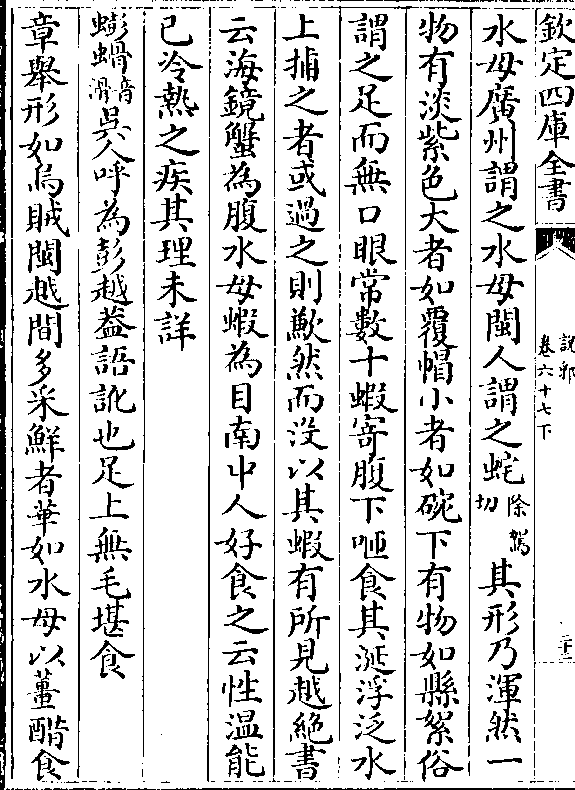 欽定四庫全書
說郛
卷六十七下
三十二
水母廣州謂之水母閩人謂之蛇除駕切其形乃渾然一
物有淡紫色大者如覆帽小者如碗下有物如縣絮俗
謂之足而無口眼常數十蝦寄腹下咂食其涎浮泛水
上捕之者或過之則歘然而没以其蝦有所見越絶書
云海鏡蟹為腹水母蝦為目南中人好食之云性温能
已冷熱之疾其理未詳
蟛蜎音滑吳人呼為彭越葢語訛也足上無毛堪食
章舉形如烏賊閩越間多采鮮者華如水母以薑醋食